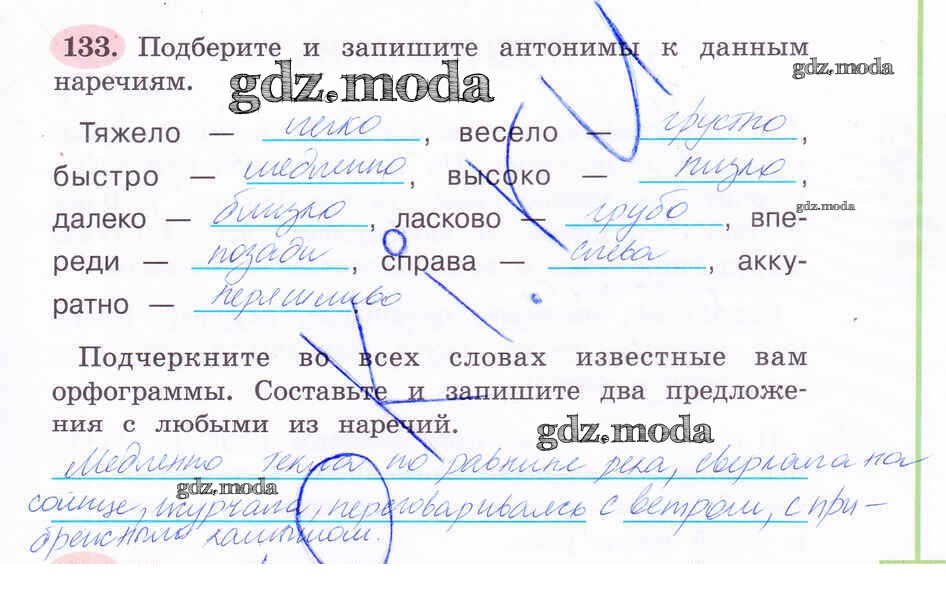 133. Подберите и запишите антонимы к данным
наречиям.
gdz.moda
gdz.moda
Тяжело — легко, весело — грустно,
быстро — медленно, высоко — низко,
далеко — близко, ласково — грубо, впе-
gdz.moda
реди — позади, справа — слева, акку-
ратно — неряшливо.
Подчеркните во всех словах известные вам
орфограммы. Составьте и запишите два предложе-
ния с любыми из наречий.
gdz.moda
Медленно текла по равнине река, сверкала на
gdz.moda
солнце, журчала, переговариваясь с ветром, с при-
брежным камышом.